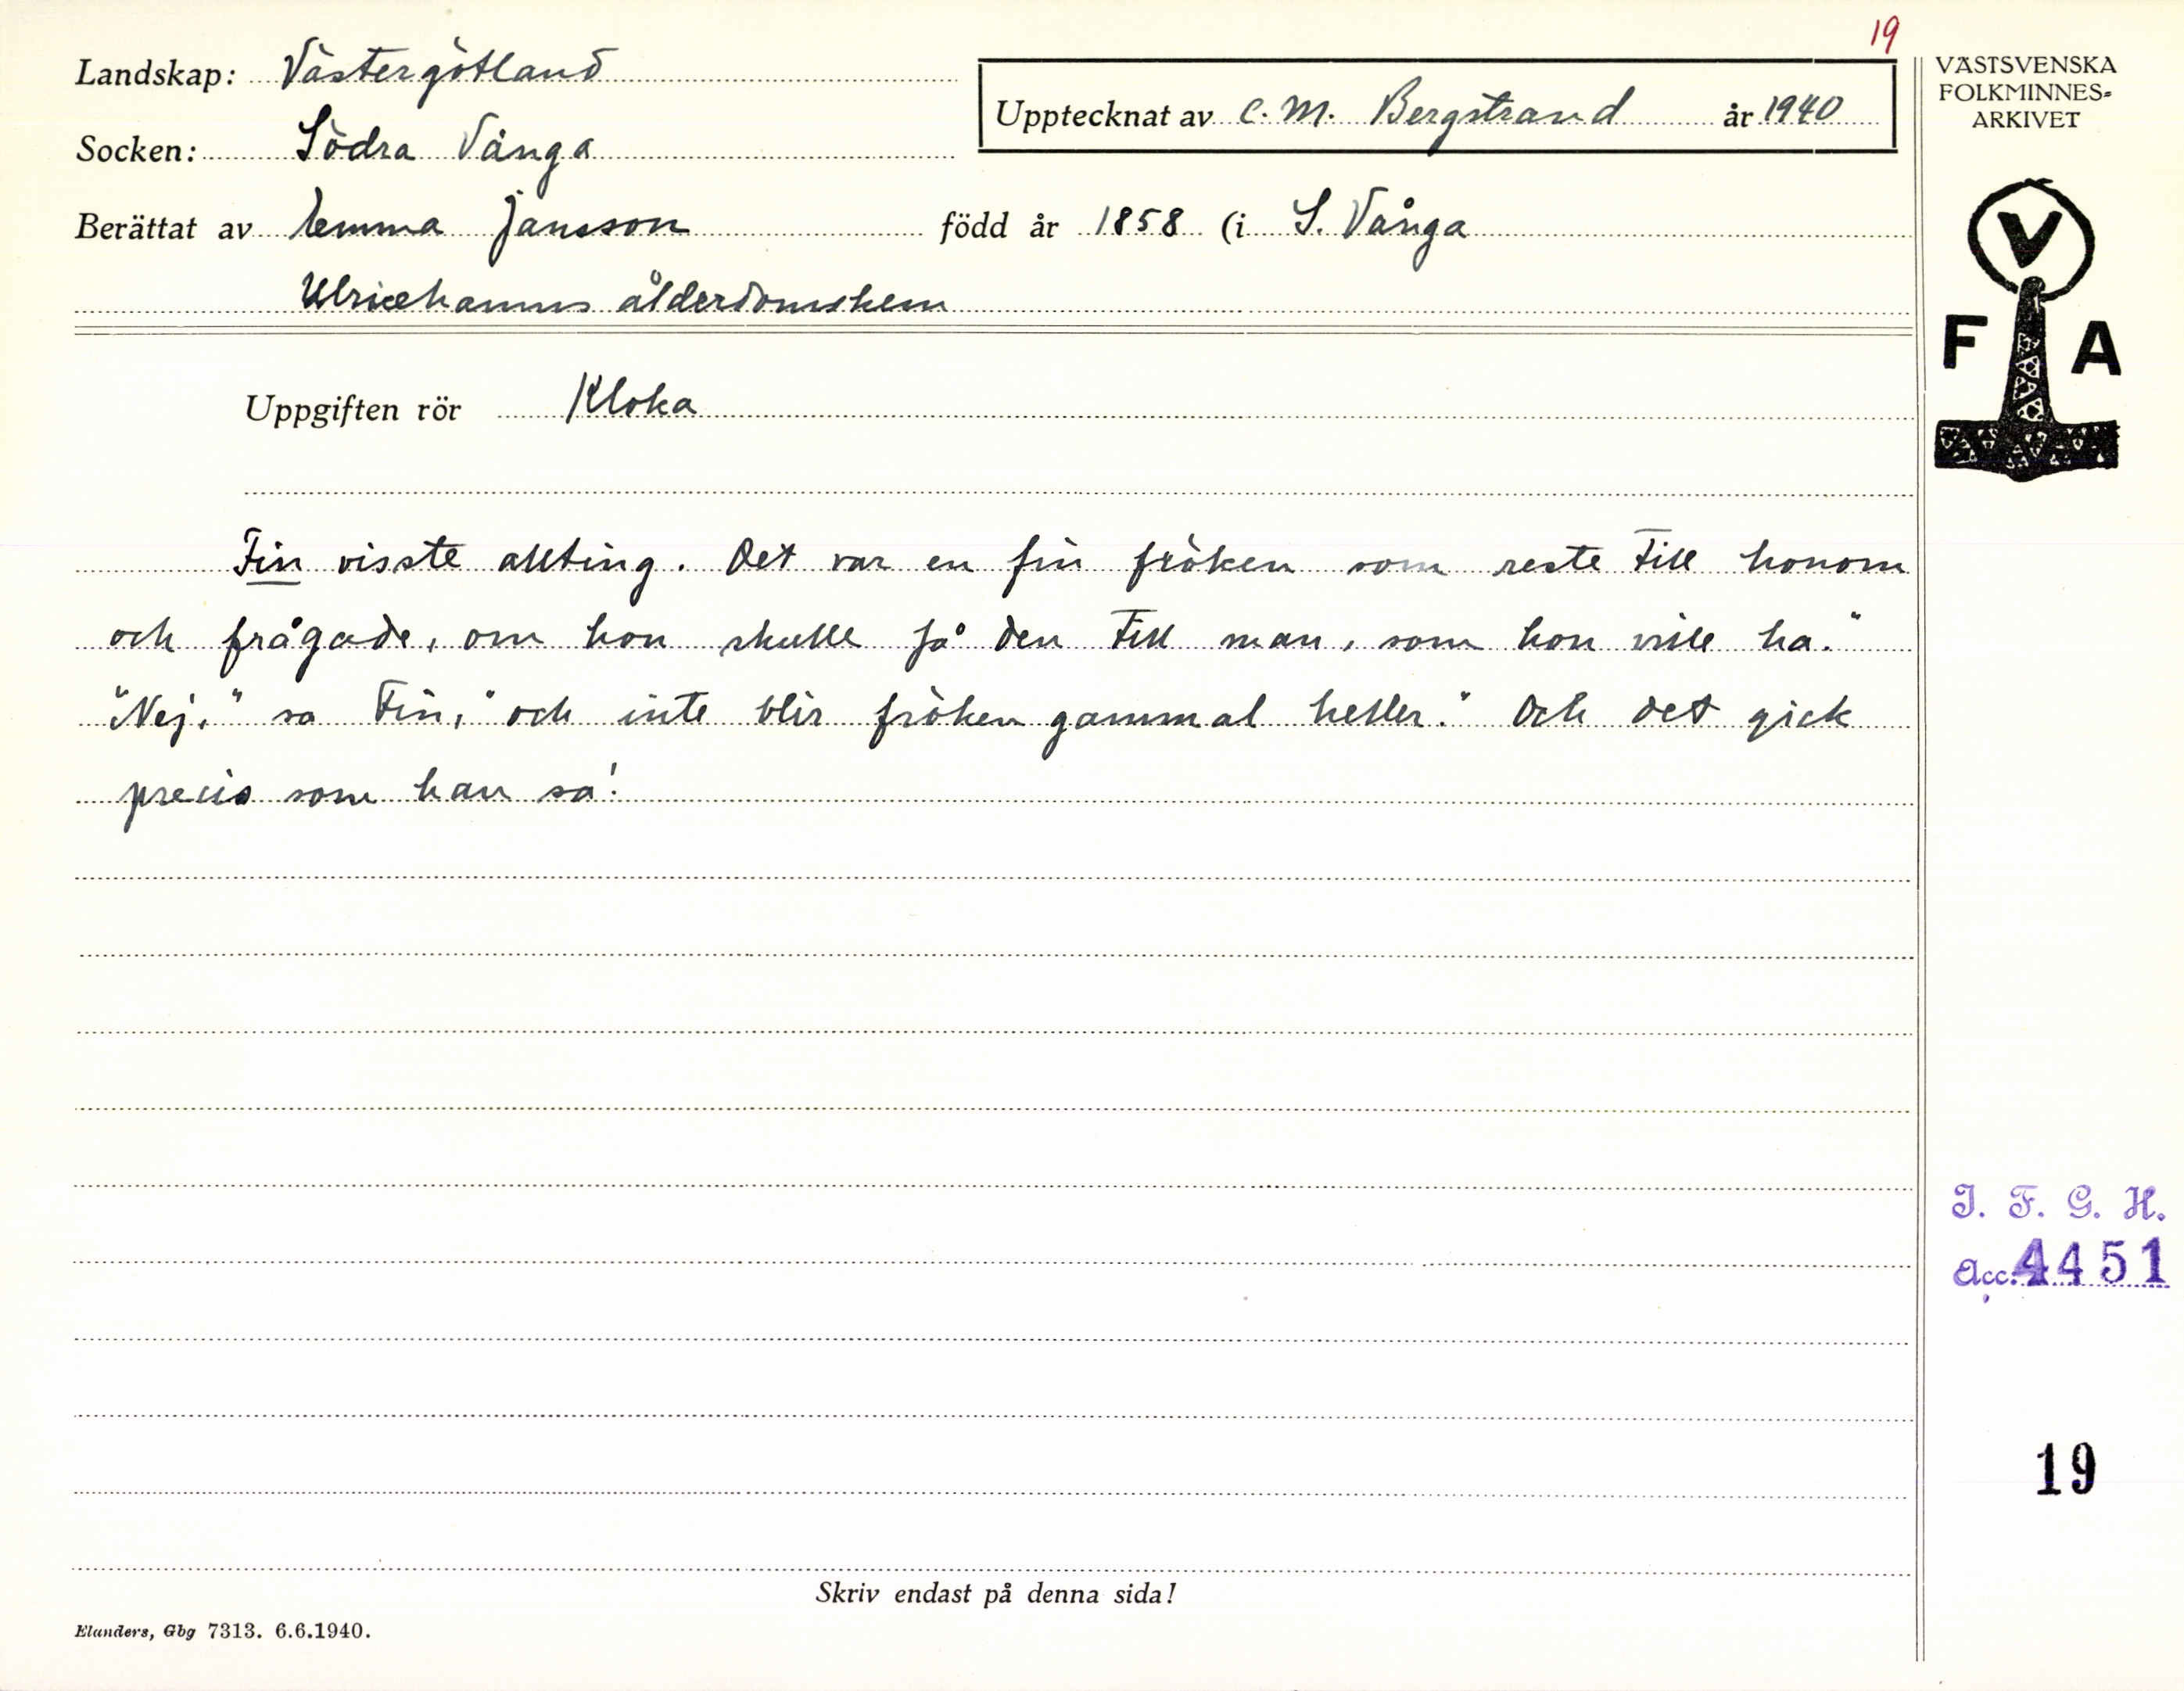 19
Landskap: Västergötland
Upptecknat av C. M. Bergstrand år 1940
VÄSTSVENSKA
FOLKMINNES-
ARKIVET
Socken: Södra Vånga
Berättat av Emma Jansson född år 1858 (i S. Vånga
Ulricehamns ålderdomshem
V
F A
Uppgiften rör Kloka
Fin visste allting. Det var en fin fröken som reste till honom
och frågade, om hon skulle få den till man, som hon ville ha."
"Nej," sa Fin, "och inte blir fröken gammal heller." Och det gick
precis som han sa!
I. F. G. H.
Acc. 4451
19
Skriv endast på denna sida!
Elanders, Gbg 7313. 6.6.1940.